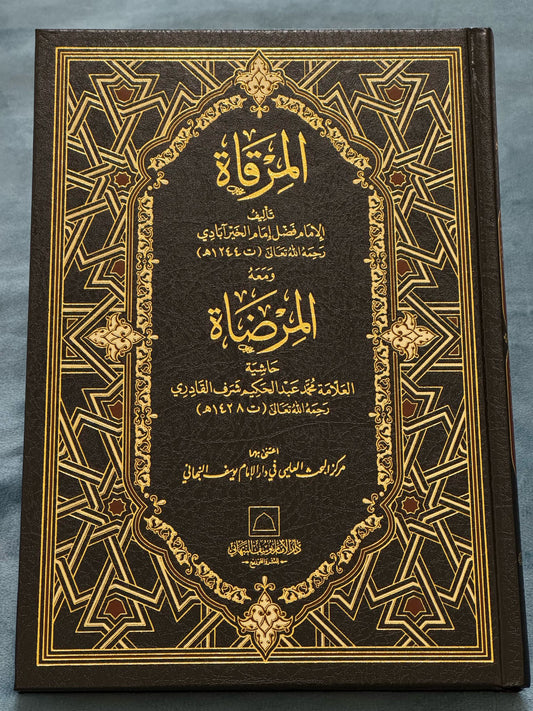 المِرْقَاة
تَأليفُ
الإمَام فَضْل إمَام الخَيْرآبَادِي
رَحِمَهُ اللهُ تَعَالىٰ (ت ١٢٤٤هـ)
وَمَعَهُ
المِرْضَاة
حَاشِيَة
العَلَّامَة مُحَمَّد عَبْد الحَكِيم شَرَف القَادِري
رَحِمَهُ اللهُ تَعَالىٰ (ت ١٤٢٨هـ)
اعتنى بهما
مركز البحث العلمي في دار الإمام يوسف النبهاني
دار الإمام يوسف النبهاني
للنشر والتوزيع